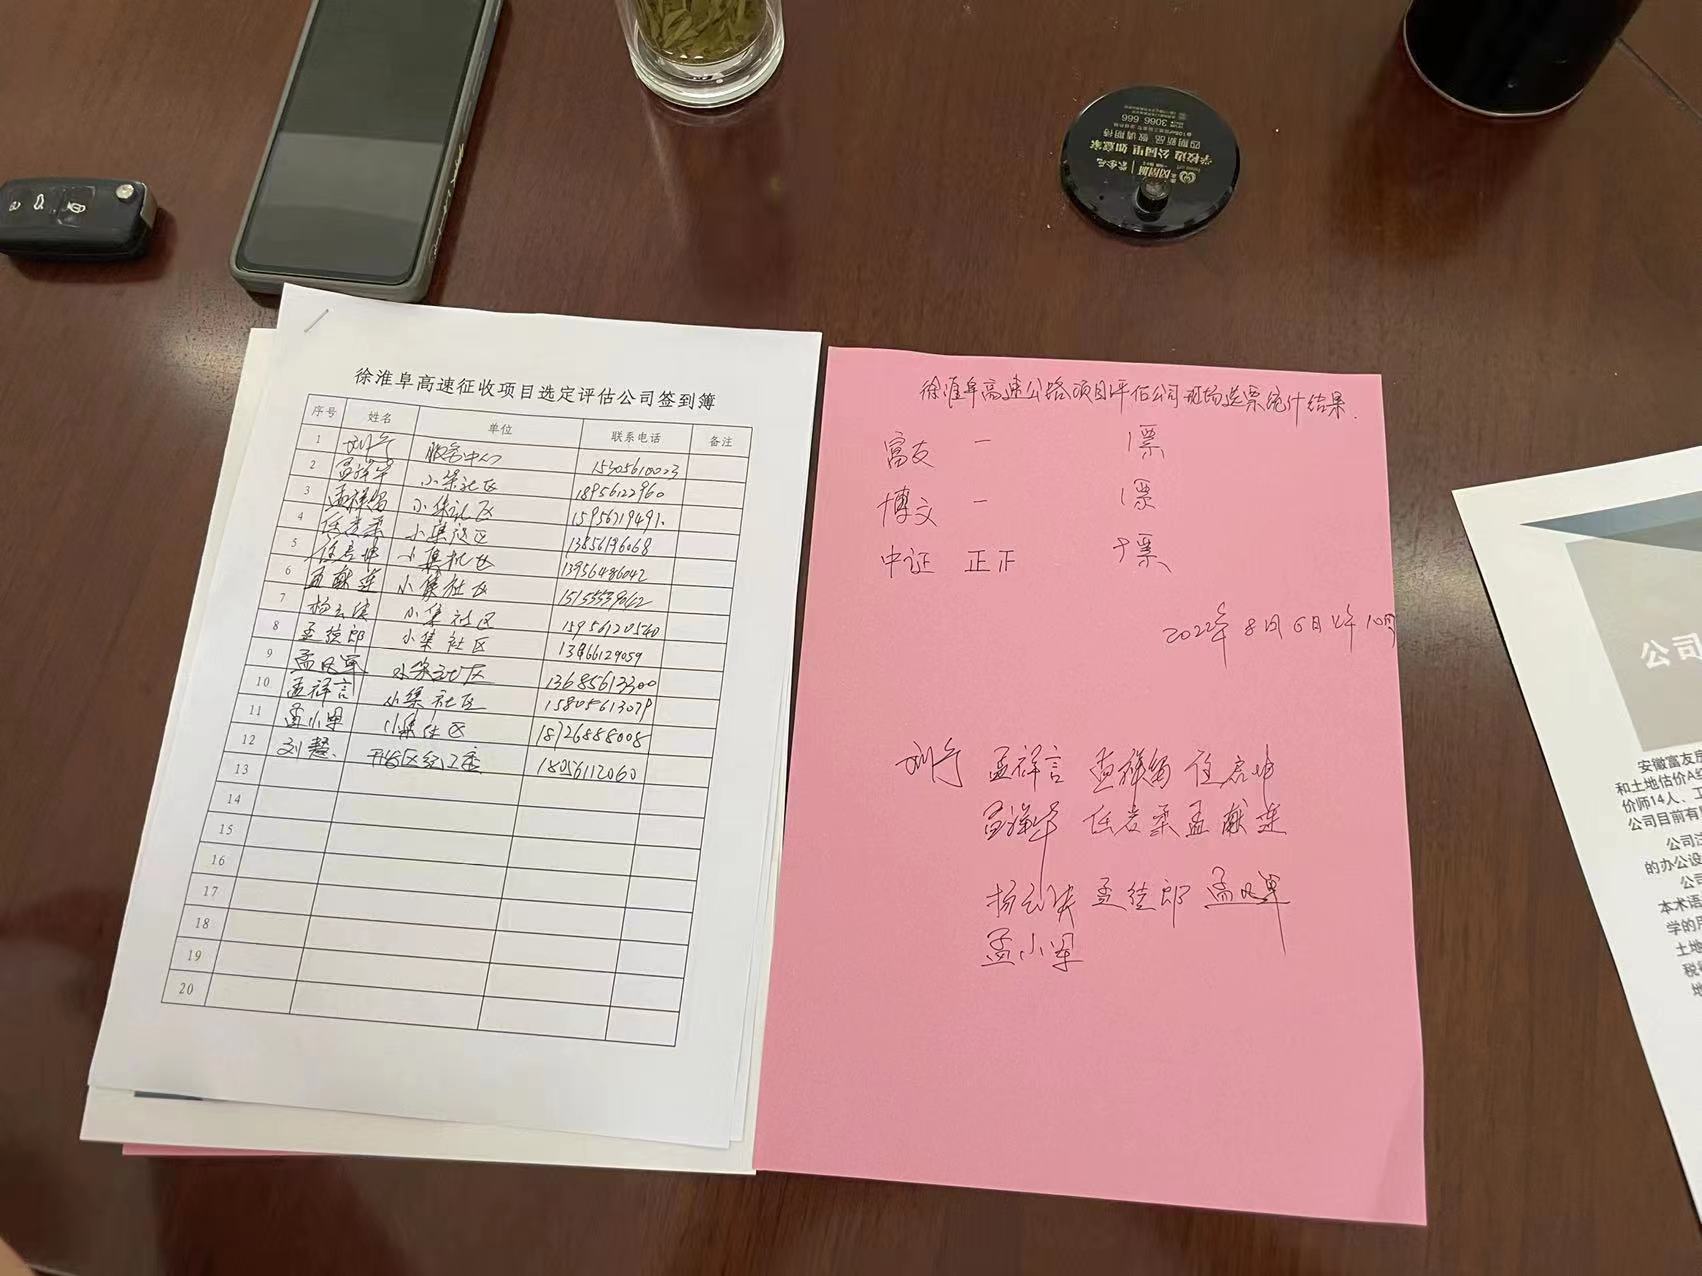 徐淮阜高速征收项目选定评估公司签到簿
序号 姓名 单位 联系电话 备注
1 服务中心 15305610023
2 孟祥华 小集社区 18956122960
3 孟祥留 小集社区 15956719491
4 任岩柔 小集社区 13856196068
5 任启坤 小集社区 13956486042
6 孟献连 小集社区
7 小集社区 15956120540
8 孟德郎 小集社区 13866129059
9 小集社区 13685613300
10 孟祥言 小集社区
11 孟小军 小集社区 18726888008
12 刘慧 18056112060
13
14
15
16
17
18
19
20
徐淮阜高速公路项目评估公司现场选票统计结果.
富友 一 1票
博文 一 1票
中证 正正 十票
2022年8月6日上午10时
孟祥言 孟祥留 任启坤
孟祥华 任岩柔 孟献连
孟德郎
孟小军
3066 666
四期新品 敬请期待
学校边 公园里 如意家
公司
安徽富友房
和土地估价A级
价师14人、工
公司目前有
公司注
的办公设
公司
本术语
学的
土地
税